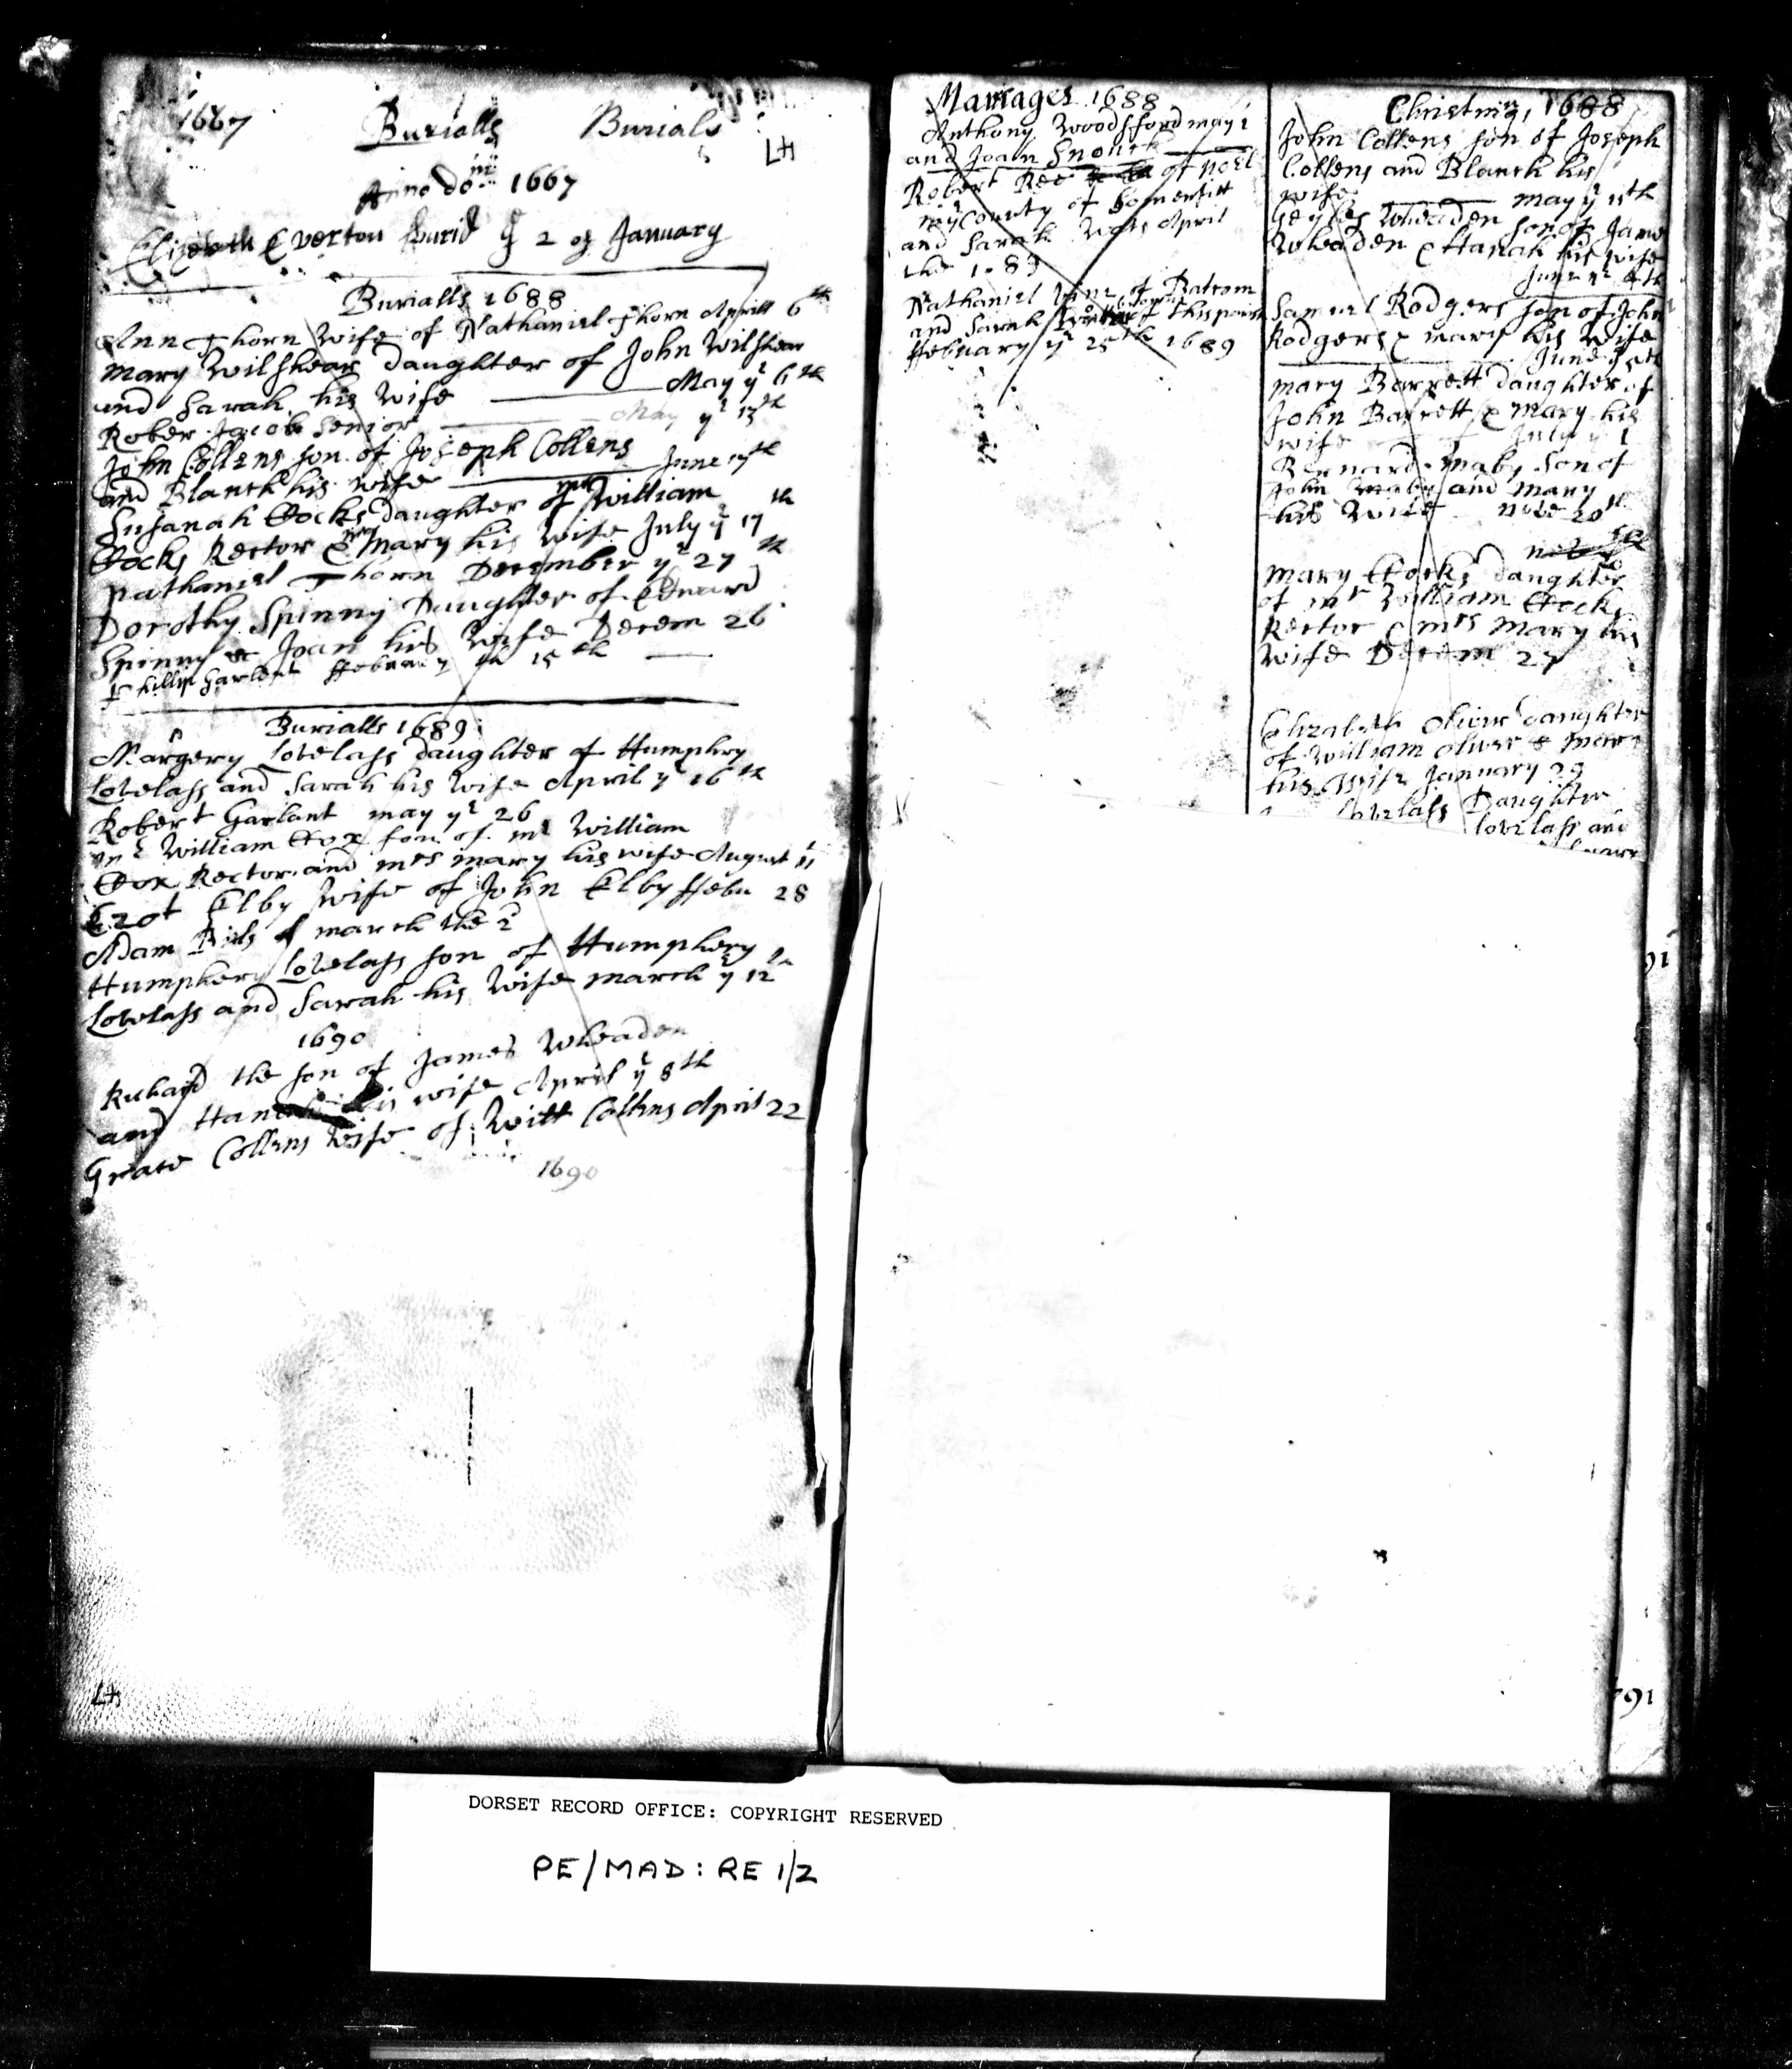 1687 Burialls Burials
Anno dom 1667
Elizabeth Everton burid y 2 of January
Burialls 1688
Ann Thorn Wife of Nathaniel Thorn Aprill 6th
Mary Wilshear daughter of John Wilshear
and Sarah his Wife May ye 6th
Rober Jacob Senior May ye 13th
John Collens son of Joseph Collens
and Blanch his Wife June 17th
Susanah Cocks daughter of mr William
Cocks Rector & mrs Mary his Wife July ye 17th
Nathaniel Thorn December ye 27th
Dorothy Spinny Daughter of Edward
Spinny & Joan his Wife Decem 26
Phillip Garlent ffebruary th 15th
Burialls 1689
Margery Lovelass daughter of Humphry
Lovelass and Sarah his Wife April ye 16th
Robert Garlant may ye 26
mr William Cox son of mr William
Cox Rector and mrs mary his wife August 11
Elby Wife of John Elby ffebu 28
Adam march the 2
Humphery Lovelass son of Humphery
Lovelass and Sarah his Wife march ye 12th
1690
Richard the son of James Wheaden
and his wife April ye 8th
Grace Collens Wife of Will Collens April 22
1690
Marriages 1688
Anthony Woodsford may 1
and Joan
Robert of
in ye County of Somersitt
and Sarah April
the
Nathaniel Vine of Batcom
and Sarah of this parish
ffebruary ye 25th 1689
Christnin, 1688
John Collens son of Joseph
Collens and Blanch his
wife may ye 11th
Wheaden son of Jame
Wheaden & Hanah his Wife
June ye 4th
Samuel Rodgers son of John
Rodgers & mary his Wife
June
mary Barrett daughter of
John Barrett & Mary his
wife July ye 1
Bernard maby son of
John maby and mary
his Wife 20th
Mary Cocks daughter
of mr William Cocks
Rector & mrs Mary his
wife Decem 27
Elizabeth Oliver daughter
of William Oliver & Mary
his Wife January 29
Lovelass Daughter
lovelass and
91
791
DORSET RECORD OFFICE: COPYRIGHT RESERVED
PE/MAD: RE 1/2